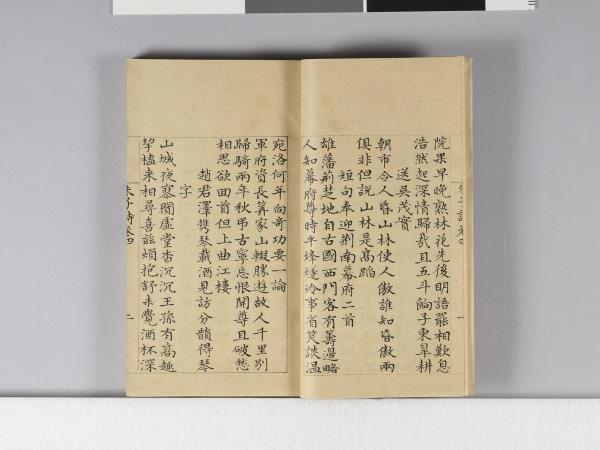 院果早晚熟林花先後明語罷相歎息
浩然起深情歸哉且五斗餉子東皋耕
送吳茂實
朝市令人昏山林使人傲誰知昏傲兩
俱非但說山林是高蹈
短句奉迎荆南幕府二首
雄藩荆楚地自古國西門客有籌邊略
人知幕府尊時平烽燧冷事省笑談温
宛洛何年向奇功要一論
軍府資長筭家山輟勝遊故人千里別
歸騎兩年秋弔古寧忘恨開尊且破愁
相思欲回首但上曲江樓
趙君澤攜琴載酒見訪分韻得琴
字
山城夜寥闃虛堂杳沉沉王孫有高趣
挈榼來相尋喜茲煩抱舒未覺酒杯深
朱子詩卷四
二